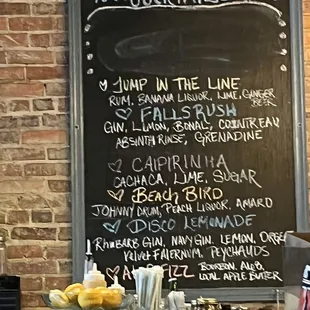 JUMP IN THE LINE
RUM, BANANA LIQUOR, LIME, GINGER
BEER
FALLS RUSH
GIN, LIMON, BONAL, COINTREAU
ABSINTH RINSE, GRENADINE
CAIPIRINHA
CACHACA, LIME, SUGAR
BEACH BIRD
JOHNNY DRUM, PEACH LIQUOR, AMARO
DISCO LEMONADE
RHUBARB GIN, NAVY GIN, LEMON,
VELVET FALERNUM, PEYCHAUDS
FIZZ
BOURBON,
LOCAL APPLE BUTTER